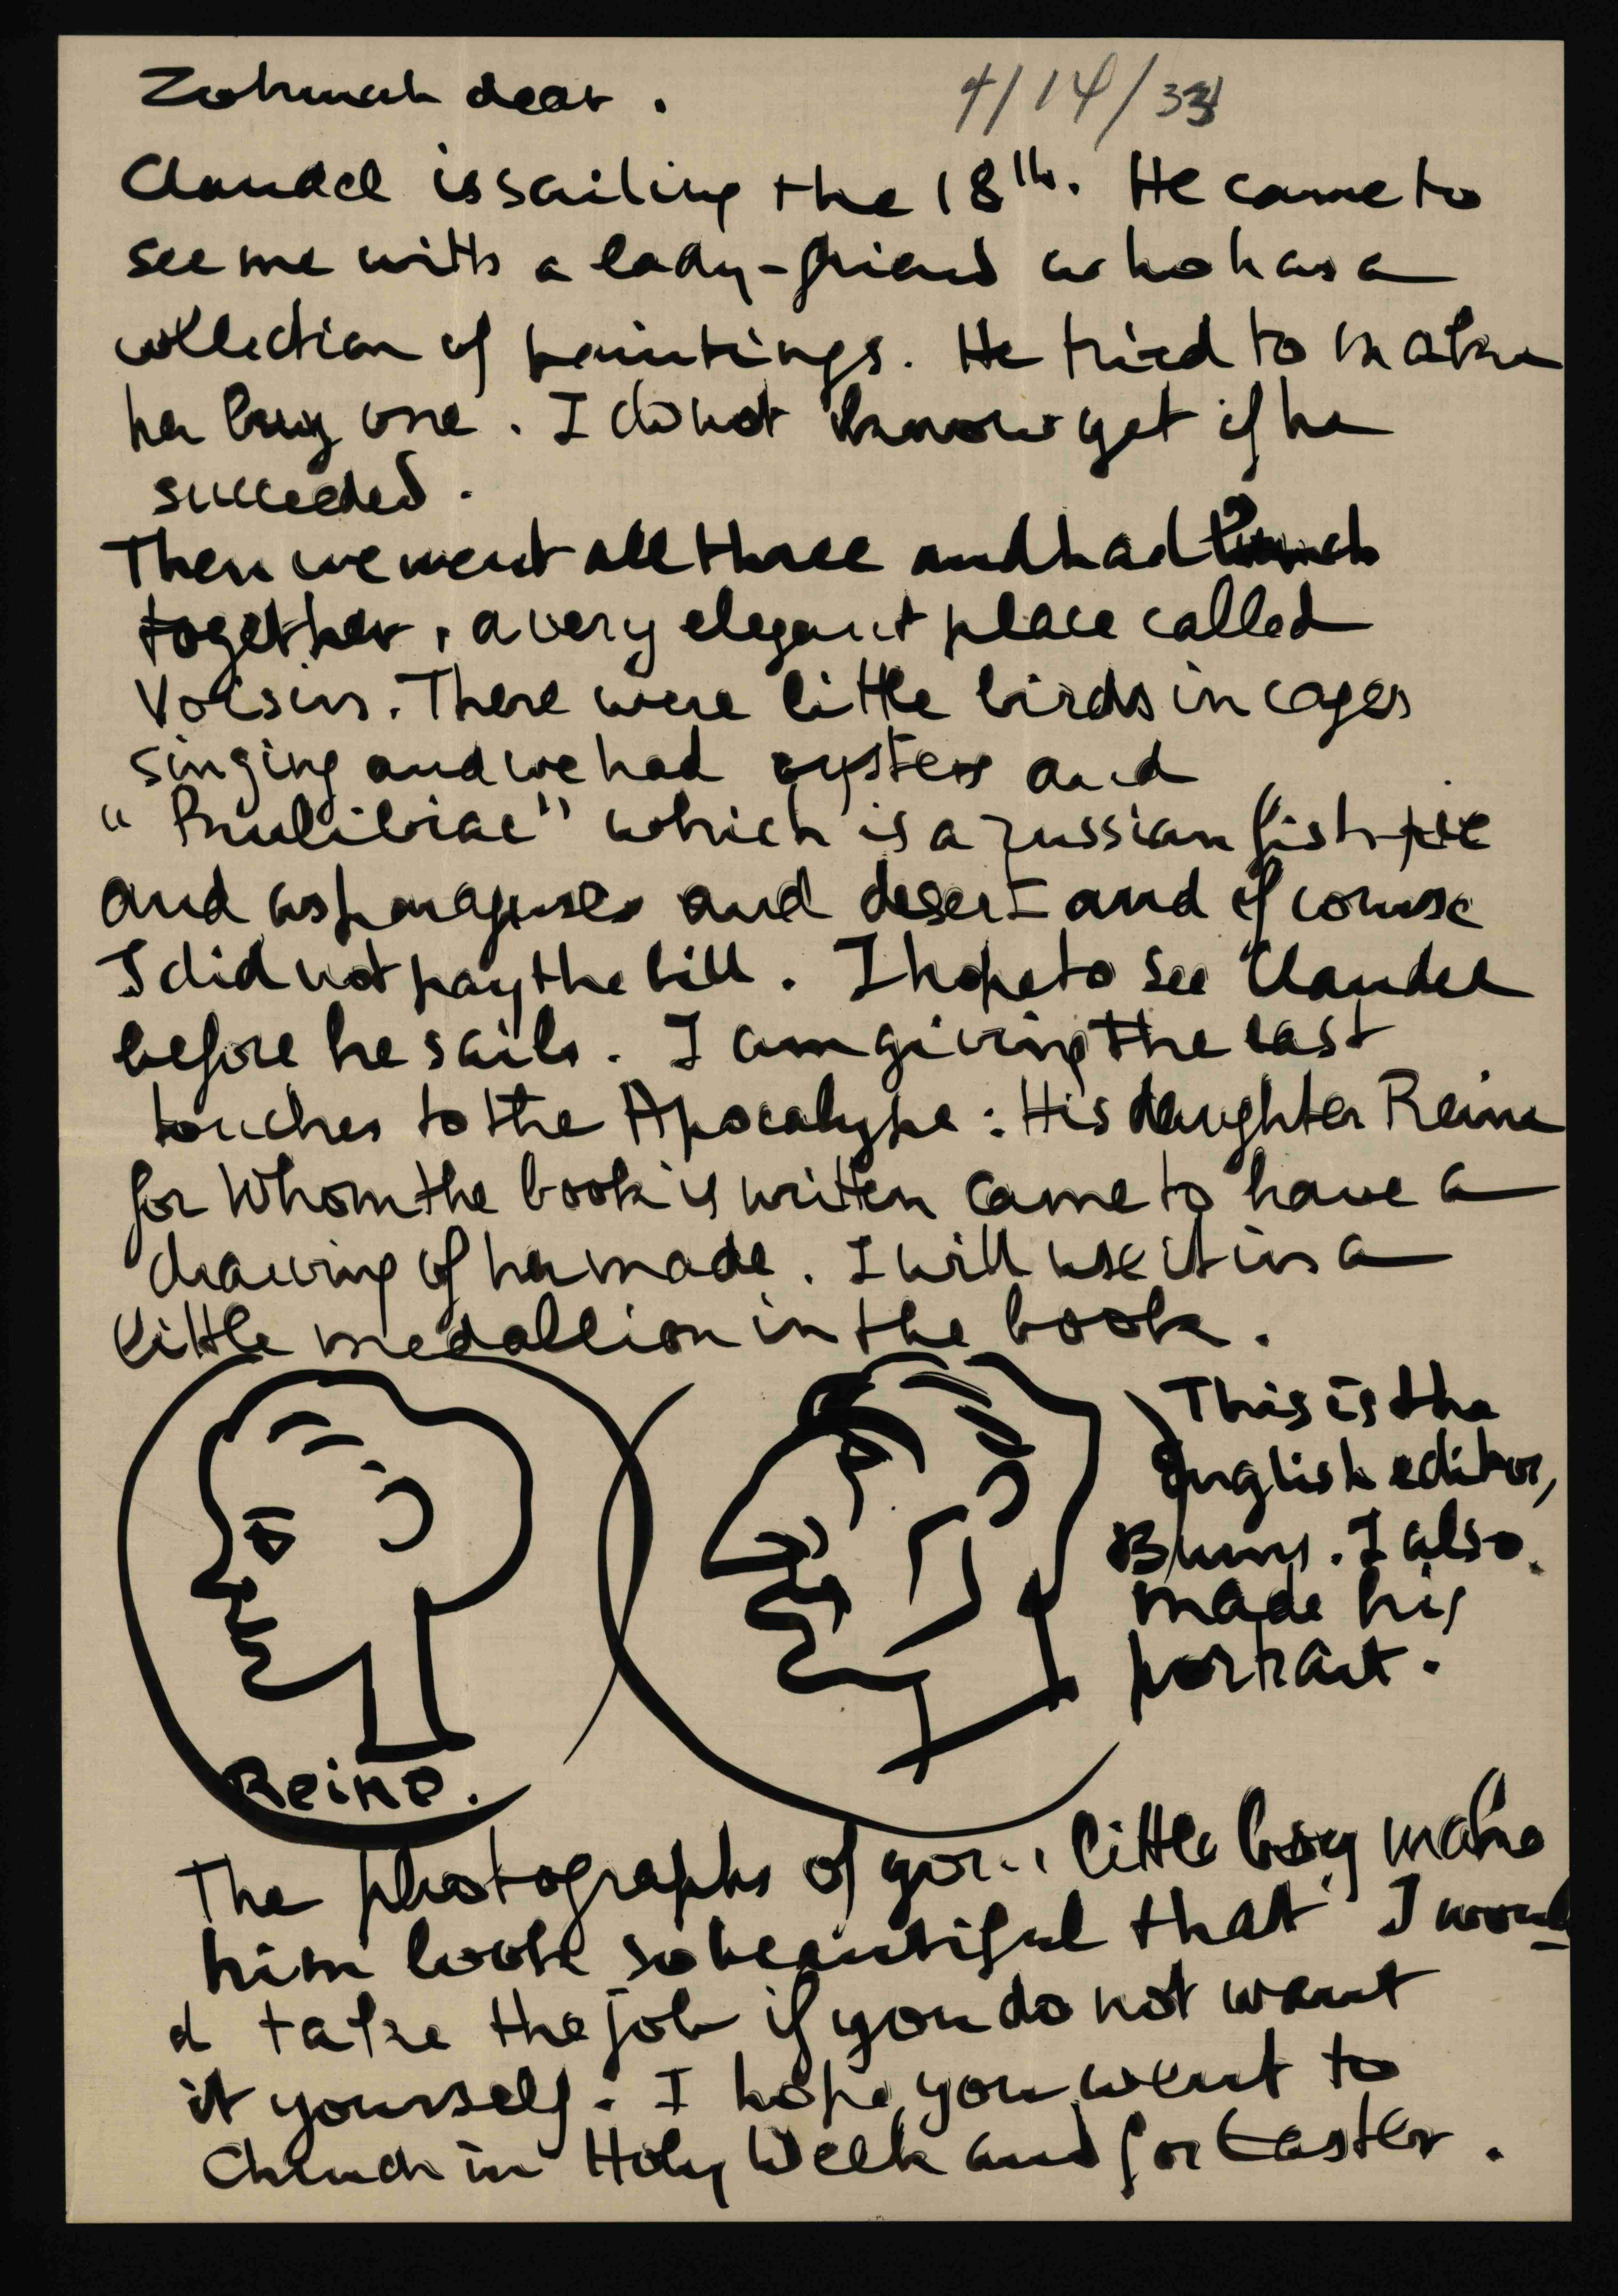 Zohmah dear.
4/14/33
Claudel is sailing the 18th. He came to
see me with a lady-friend who has a
collection of paintings. He tried to make
her buy one. I do not know yet if he
succeeded.
Then we went all three and had lunch
together, a very elegant place called
Voisins. There were little birds in cages
singing and we had oysters and
"Koulibiac" which is a russian fish-pie
and asparaguses and desert and of course
I did not pay the bill. I hope to see Claudel
before he sails. I am giving the last
touches to the Apocalypse: His daughter Reine
for Whom the book is written came to have a
drawing of her made. I will use it in a
little medallion in the book.
This is the
english editor,
Burns. I also
made his
portrait.
Reine.
The photographs of your little boy make
him look so beautiful that I woul
d take the job if you do not want
it yourself. I hope you went to
Church in Holy Week and for Easter.